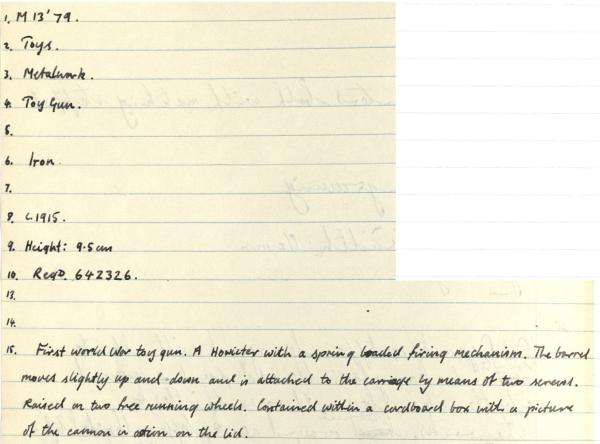 1. M 13' 79.
2. Toys.
3. Metalwork.
4. Toy Gun.
5.
6. Iron.
7.
8. c.1915.
9. Height: 9.5cm
10. Regd. 642326.
13.
14.
15. First world War toy gun. A Howicter with a spring loaded firing mechanism. The barrel
moves slightly up and down and is attached to the carriage by means of two screws.
Raised on two free running wheels. Contained within a cardboard box with a picture
of the cannon in action on the lid.